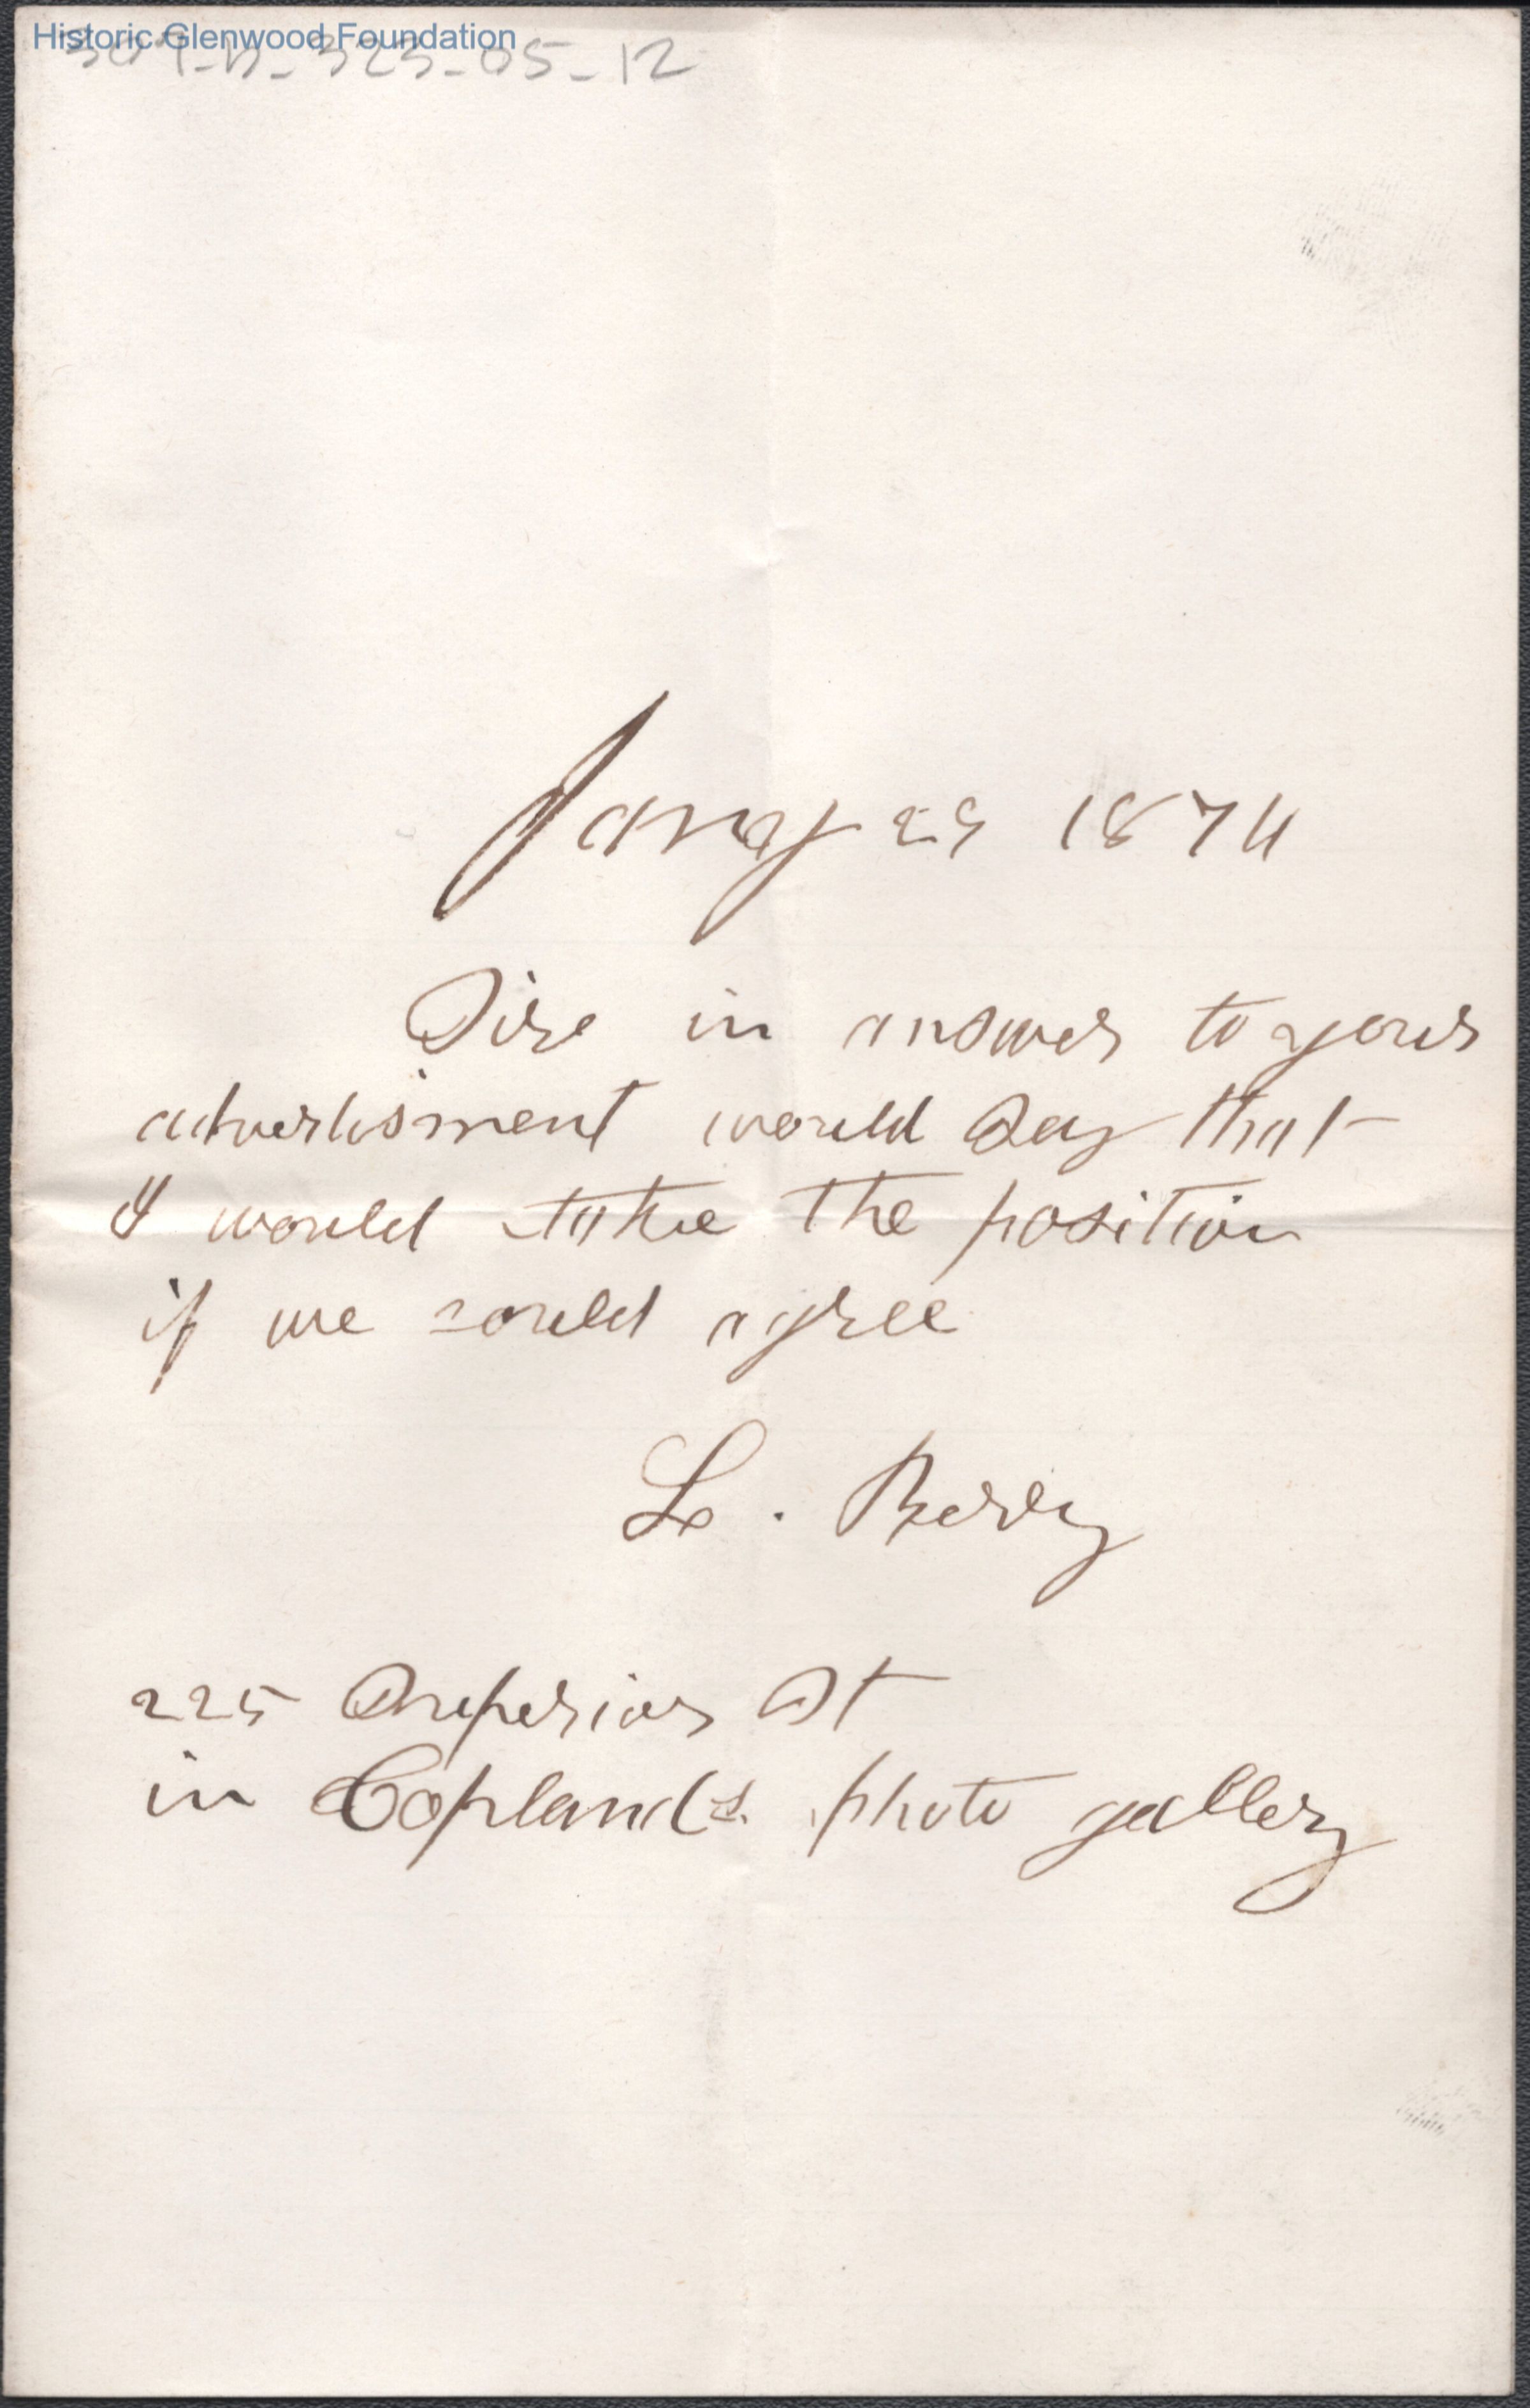 Historic Glenwood Foundation
323-05-12
Jany 29 1874
Sire in answer to your
advertisment would say that
I would take the position
if we could agree
L. Berry
225 Superior St
in Coplands photo gallery